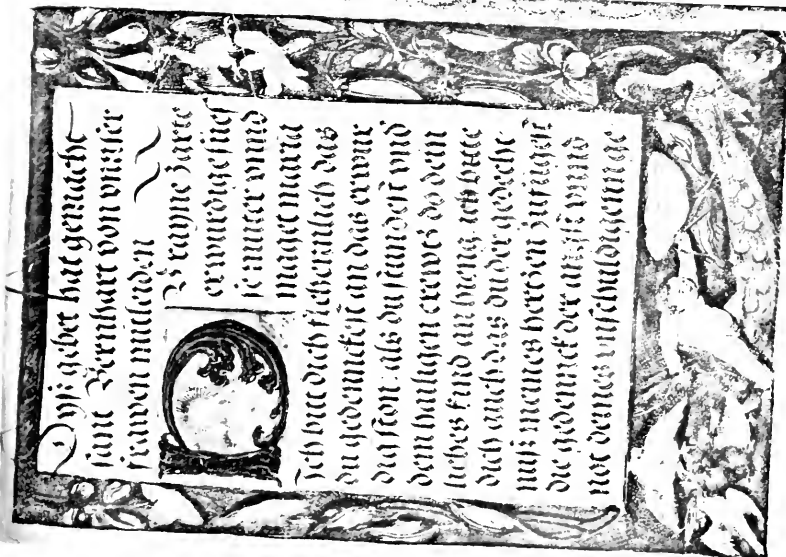 Dyß gebet hat gemacht
sant Bernhart von vnsser
frawen mitleiden
O rayne zarte
erwurdige sues
se muter vnnd
maget maria
Ich bit dich fleissenlich das
du gedennckest an das erwur
did ston als du stundest vnd
dem hailigen crewtz do dein
liebes kind an hieng ich bite
dich auch das du der gedecht
nuß meines hertzen zufugest
die gedenck der angst vnnd
not deines vnschuldigen